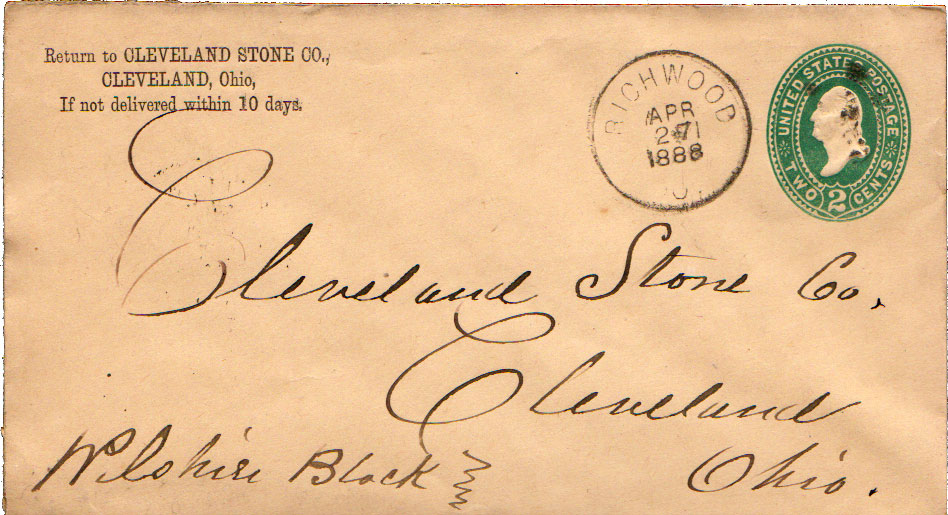 Return to CLEVELAND STONE CO.,
CLEVELAND, Ohio,
If not delivered within 10 days.
RICHWOOD
APR
1888
UNITED STATES POSTAGE
TWO 2 CENTS
Cleveland Stone Co.
Cleveland
Ohio.
Wilshire Block